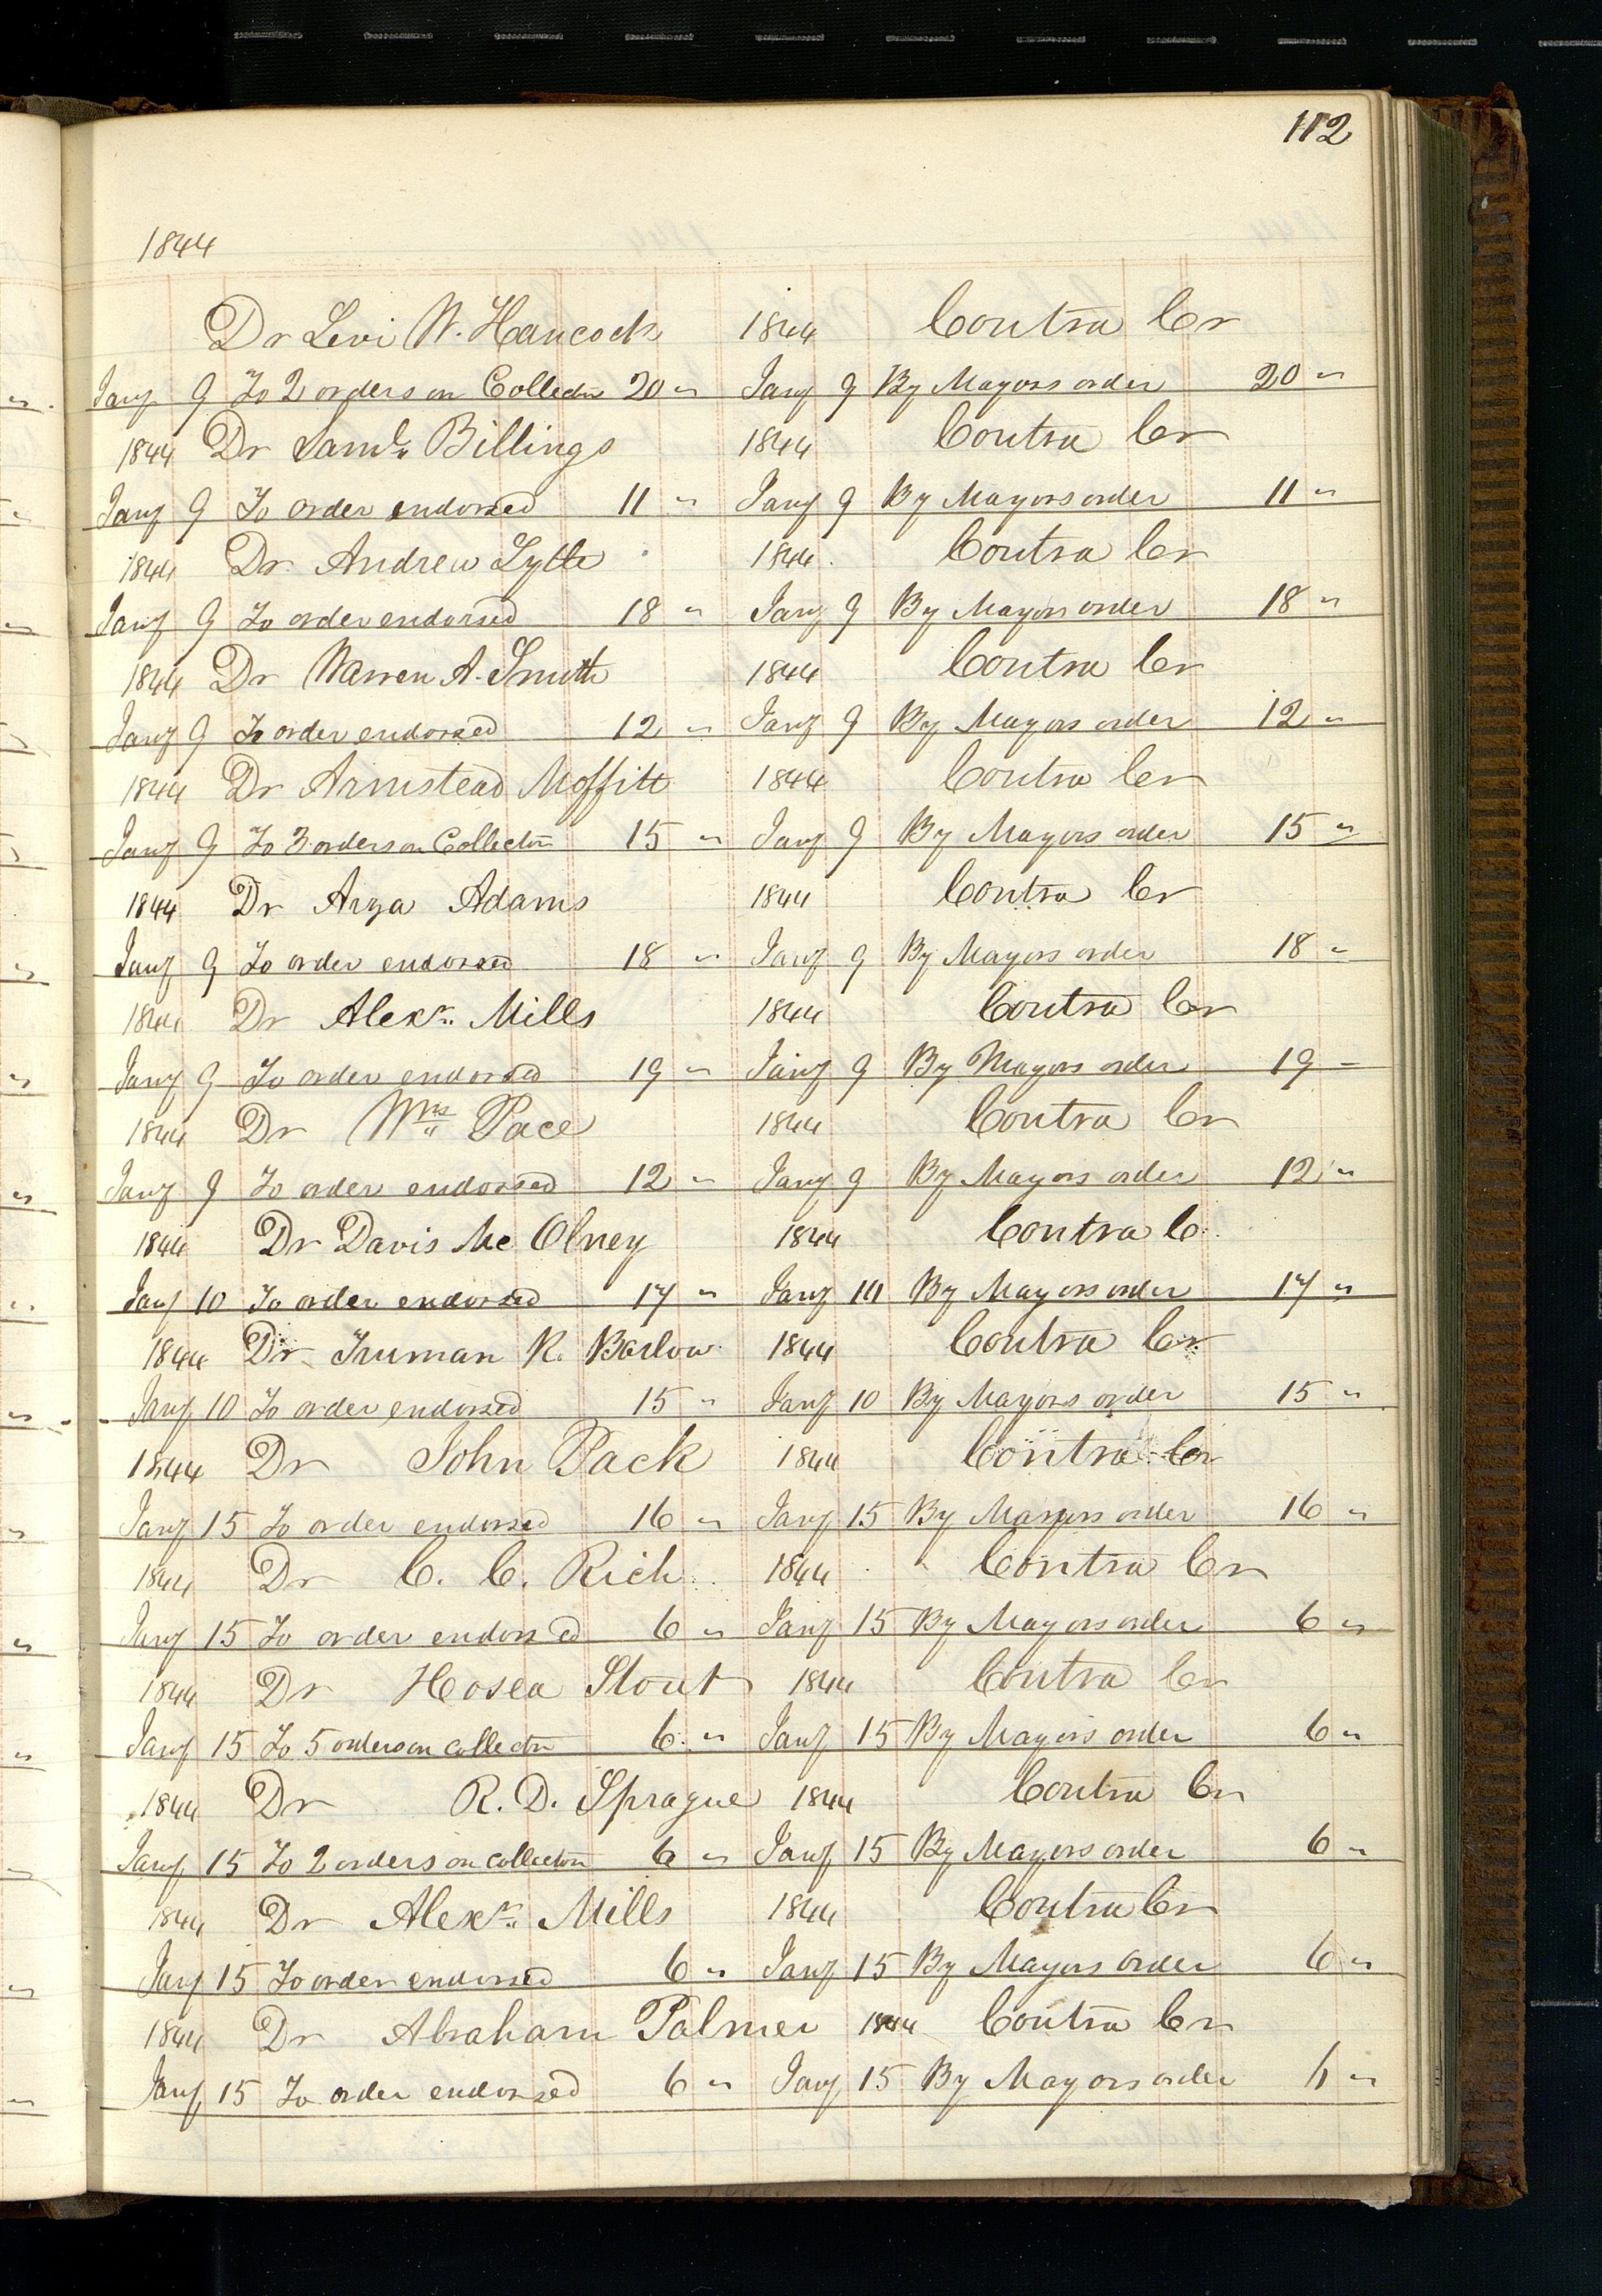 112
1844
Dr Levi W. Hancock 1844 Contra Cr
Jany 9 To 2 orders on Collector 20 " Jany 9 By Mayors order 20 "
1844 Dr Saml. Billings 1844 Contra Cr
Jany 9 To order endorsed 11 " Jany 9 By Mayors order 11 "
1844 Dr Andrew Lytle 1844 Contra Cr
Jany 9 To order endorsed 18 " Jany 9 By Mayors order 18 "
1844 Dr Warren A. Smith 1844 Contra Cr
Jany 9 To order endorsed 12 " Jany 9 By Mayors order 12 "
1844 Dr Armstead Moffitt 1844 Contra Cr
Jany 9 To 3 orders on Collector 15 " Jany 9 By Mayors order 15 "
1844 Dr Arza Adams 1844 Contra Cr
Jany 9 To order endorsed 18 " Jany 9 By Mayors order 18 "
1844 Dr Alexr. Mills 1844 Contra Cr
Jany 9 To order endorsed 19 " Jany 9 By Mayors order 19 "
1844 Dr Wm Pace 1844 Contra Cr
Jany 9 To order endorsed 12 " Jany 9 By Mayors order 12 "
1844 Dr Davis Mc Olney 1844 Contra C
Jany 10 To order endorsed 17 " Jany 10 By Mayors order 17 "
1844 Dr Truman R. Barlow 1844 Contra Cr
Jany 10 To order endorsed 15 " Jany 10 By Mayors order 15 "
1844 Dr John Pack 1844 Contra Cr
Jany 15 To order endorsed 16 " Jany 15 By Mayors order 16 "
1844 Dr C. C. Rich 1844 Contra Cr
Jany 15 To order endorsed 6 " Jany 15 By Mayors order 6 "
1844 Dr Hosea Stout 1844 Contra Cr
Jany 15 To 5 orders on collector 6 " Jany 15 By Mayors order 6 "
1844 Dr R. D. Sprague 1844 Contra Cr
Jany 15 To 2 orders on collector 6 " Jany 15 By Mayors order 6 "
1844 Dr Alexr. Mills 1844 Contra Cr
Jany 15 To order endorsed 6 " Jany 15 By Mayors order 6 "
1844 Dr Abraham Palmer 1844 Contra Cr
Jany 15 To order endorsed 6 " Jany 15 By Mayors order 6 "